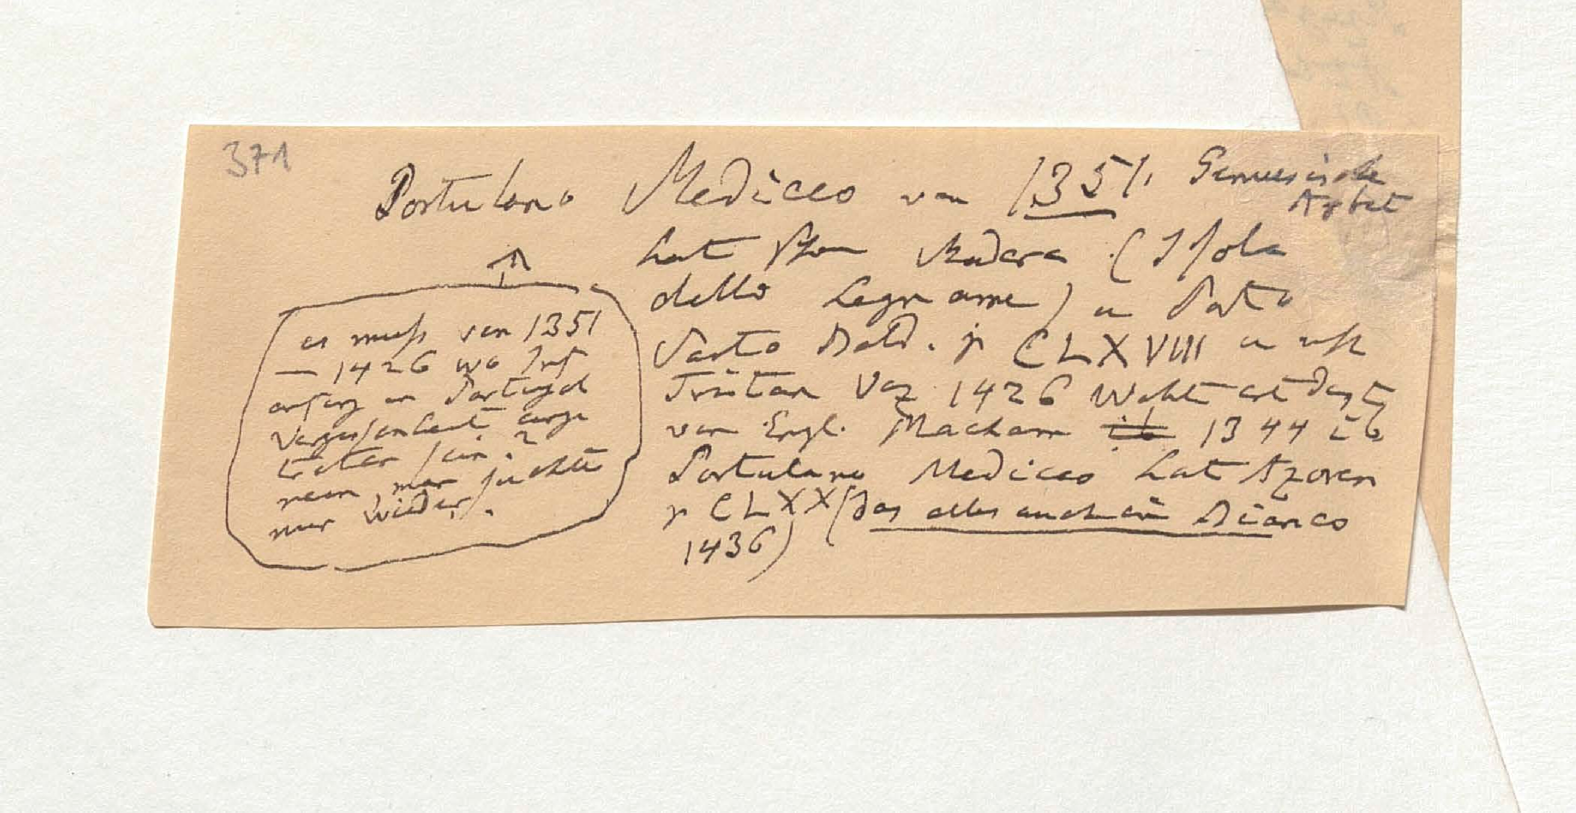 371
Portulano Mediceo von 1351. Genuesische
Arbeit
hat schon Madera (Isola
dello Legname) u Porto
Santo Bald. p CLXVIII u nach
Tristan Vaz 1426
von Engl. Macham 1344 ib
Portulano Mediceo hat Azoren
p CLXX (das alles auch in Bianco
1436)
es muss von 1351
— 1426 wo Inf
anfing in Portugal
Vergessenheit einge
treten sein?
nein, man suchte
nur wieder.